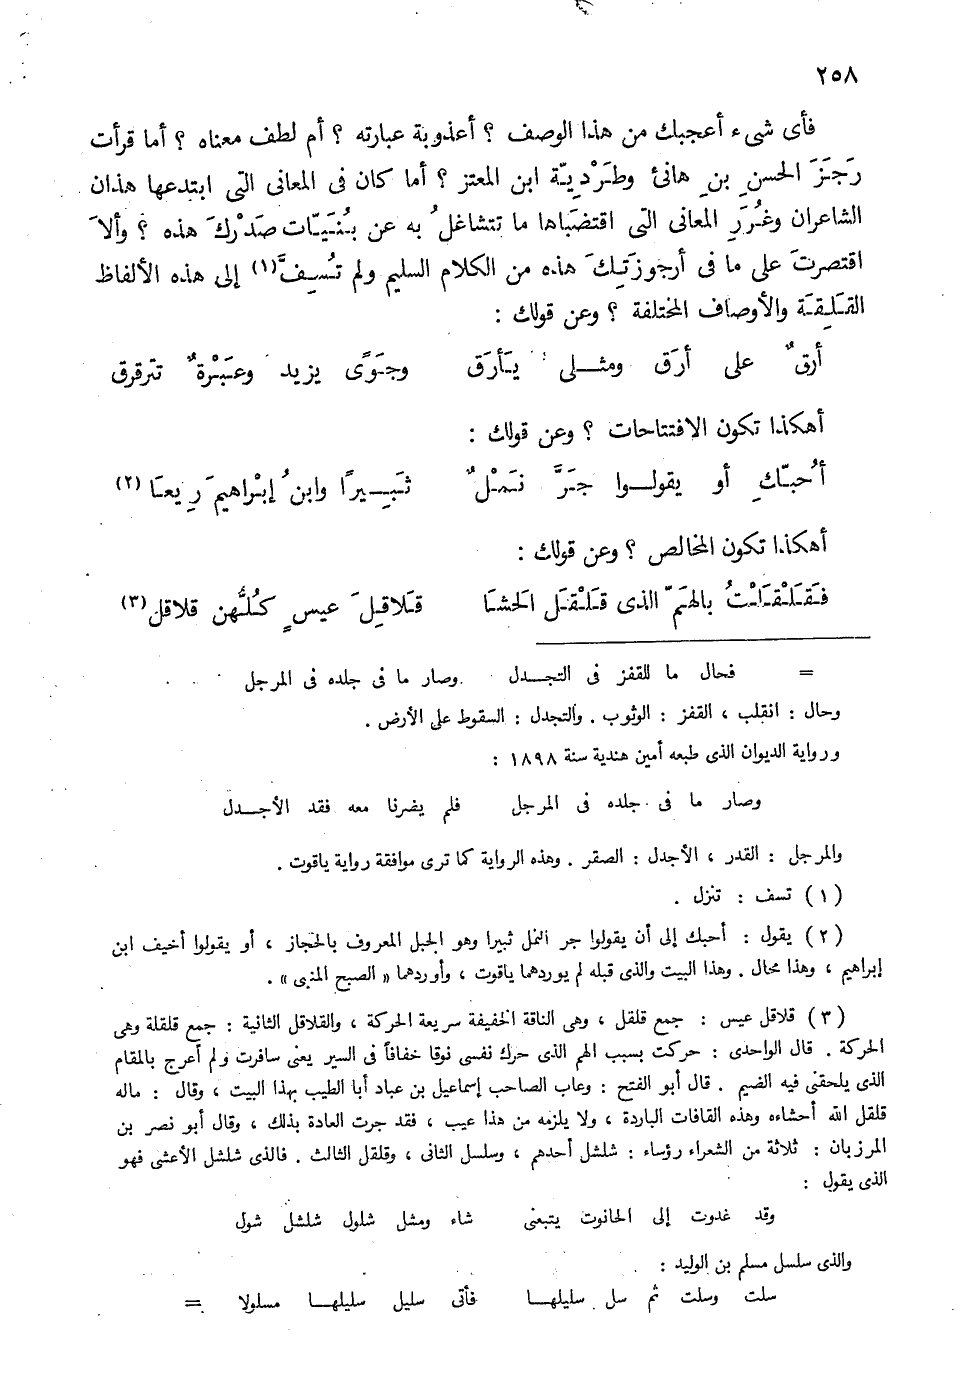 ٢٥٨
فأى شىء أعجبك من هذا الوصف ؟ أعذوبة عبارته ؟ أم لطف معناه ؟ أما قرأت
رَجَزَ الحسنِ بنِ هانئ وطَرْدِيّة ابن المعتز ؟ أما كان فى المعانى التى ابتدعها هذان
الشاعران وغُرَرِ المعانى التى اقتضَباها ما تتشاغلُ به عن بُنَيّات صَدْرِكَ هذه ؟ وألاَ
اقتصرتَ على ما فى أرجوزَتِكَ هذه من الكلام السليم ولم تُسِفَّ(١) إلى هذه الألفاظ
القَلِقَة والأوصاف المختلفة ؟ وعن قولك :
أرقٌ على أرَق ومثلى يَأرَق وجَوًى يزيد وعَبْرةٌ تترقرق
أهكذا تكون الافتتاحات ؟ وعن قولك :
أُحبّكِ أو يقولوا جرَّ نَمْلٌ ثَبِيرًا وابنُ إبْراهيمَ رِيعَا (٢)
أهكذا تكون المخالص ؟ وعن قولك :
فَقَلْقَلْتُ بالهَمّ الذى قَلْقَل الحَشَا قَلاقِلَ عيسٍ كُلُّهن قلاقل (٣)
= فحال ما للقفز فى التجدل وصار ما فى جلده فى المرجل
وحال : انقلب ، القفز : الوثوب . والتجدل : السقوط على الأرض .
ورواية الديوان الذى طبعه أمين هندية سنة ١٨٩٨ :
وصار ما فى جلده فى المرجل فلم يضرنا معه فقد الأجدل
والمرجل : القدر ، الأجدل : الصقر . وهذه الرواية كما ترى موافقة رواية ياقوت .
(١) تسف : تنزل .
(٢) يقول : أحبك إلى أن يقولوا جر النمل ثبيرا وهو الجبل المعروف بالحجاز ، أو يقولوا أخيف ابن
إبراهيم ، وهذا محال . وهذا البيت والذى قبله لم يوردهما ياقوت ، وأوردهما « الصبح المنبى » .
(٣) قلاقل عيس : جمع قلقل ، وهى الناقة الخفيفة سريعة الحركة ، والقلاقل الثانية : جمع قلقلة وهى
الحركة . قال الواحدى : حركت بسبب الهم الذى حرك نفسى نوقا خفافاً فى السير يعنى سافرت ولم أعرج بالمقام
الذى يلحقنى فيه الضيم . قال أبو الفتح : وعاب الصاحب إسماعيل بن عباد أبا الطيب بهذا البيت ، وقال : ماله
قلقل الله أحشاءه وهذه القافات الباردة ، ولا يلزمه من هذا عيب ، فقد جرت العادة بذلك ، وقال أبو نصر بن
المرزبان : ثلاثة من الشعراء رؤساء : شلشل أحدهم ، وسلسل الثانى ، وقلقل الثالث . فالذى شلشل الأعشى فهو
الذى يقول :
وقد غدوت إلى الحانوت يتبعنى شاء ومشل شلول شلشل شول
والذى سلسل مسلم بن الوليد :
سلت وسلت ثم سل سليلها فأتى سليل سليلها مسلولا =